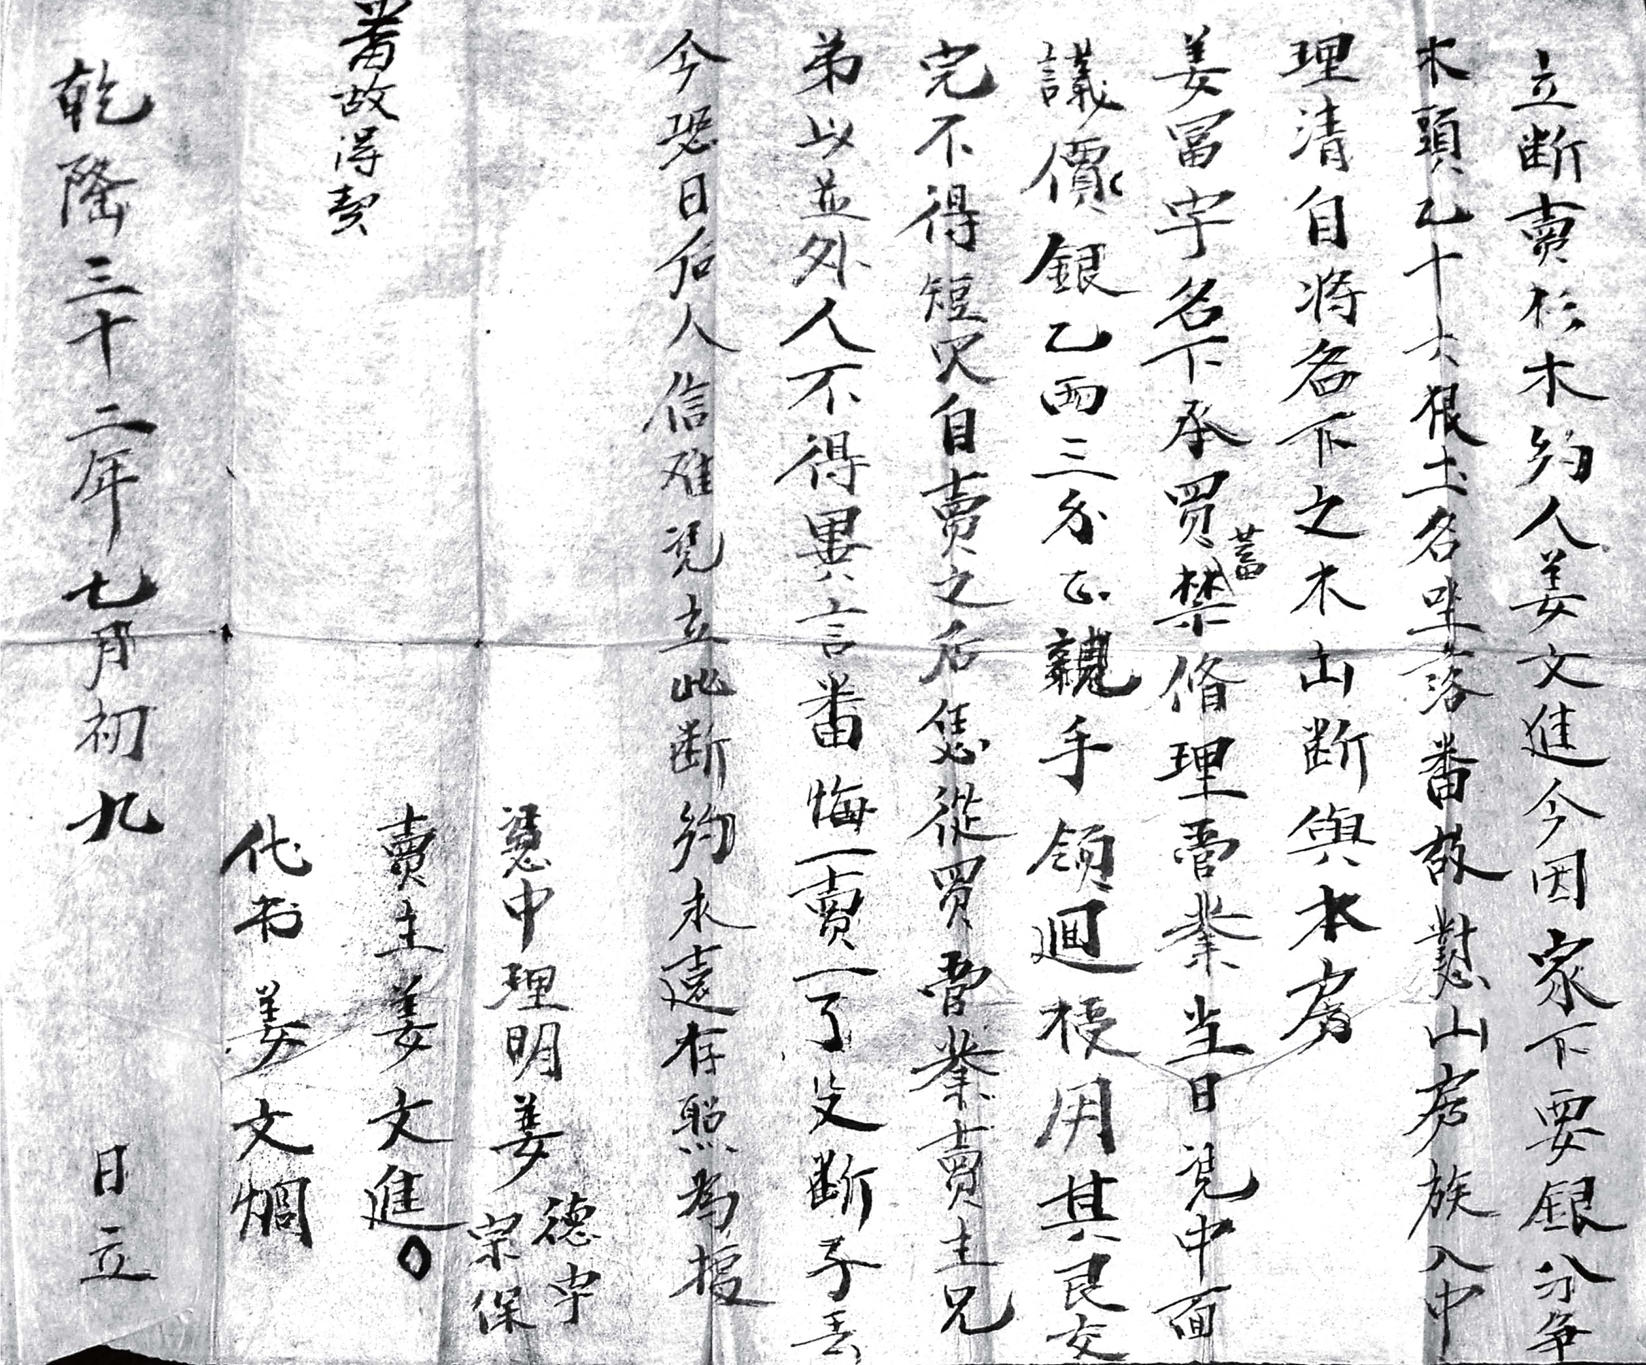 立断賣杉木約人姜文進今因家下要銀分争
木頭乙十六根土名坐落畨故懟山房族入中
理清自将名下之木山断與本房
姜冨宇名下承買蓄禁脩理管業当日凴中面
議價銀乙両三分正親手领迴授用其艮交
完不得短欠自賣之后恁從買管業賣主兄
弟以並外人不得異言畨悔一賣一了父断子丢
今恐日后人信难凴立此断約永遠存照為授
憑中理明姜德宇
宗保
賣主姜文進〇
畨故得契
代书姜文烱
乾隆三十二年七月初九日立